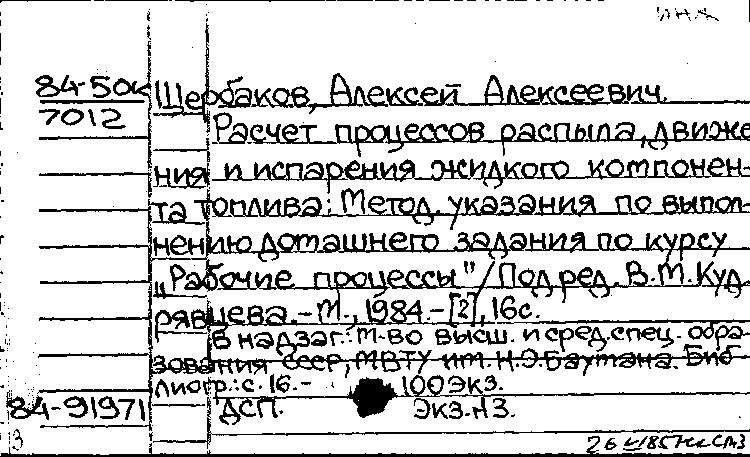 инж
84-50к Щербаков, Алексей Алексеевич.
7012 Расчет процессов распыла, движе
ния и испарения жидкого компонен-
та топлива: Метод. указания по выпол-
нению домашнего задания по курсу
„Рабочие процессы"/Под ред. В.М. Куд.
рявцева. - М., 1984. - [2], 16с.
В надзаг.: М-во высш. и сред. спец. обра-
зования СССР, МВТУ им. Н.Э. Баумана. Биб
лиогр.: с. 16. - 100 экз.
84-91971 ДСП. Экз. н3.
3